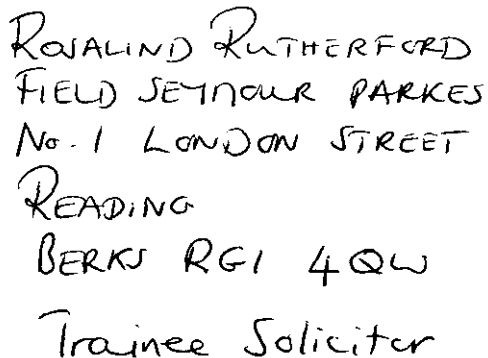 ROSALIND RUTHERFORD
FIELD SEYMOUR PARKES
No. 1 LONDON STREET
READING
BERKS RG1 4QW
Trainee Solicitor